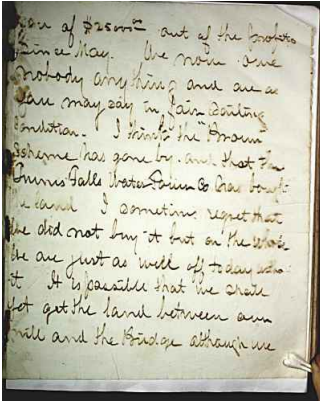 of $25000.00 out of the profits
since May. We now owe
nobody anything and are as
you may say in fair sailing
condition. I think the "Brown
Scheme has gone by and that the
Falls Water Power Co has bought
the land I sometimes regret that
we did not buy it but on the whole
we are just as well off today
it It is possible that we shall
yet get the land between our
mill and the Bridge although we